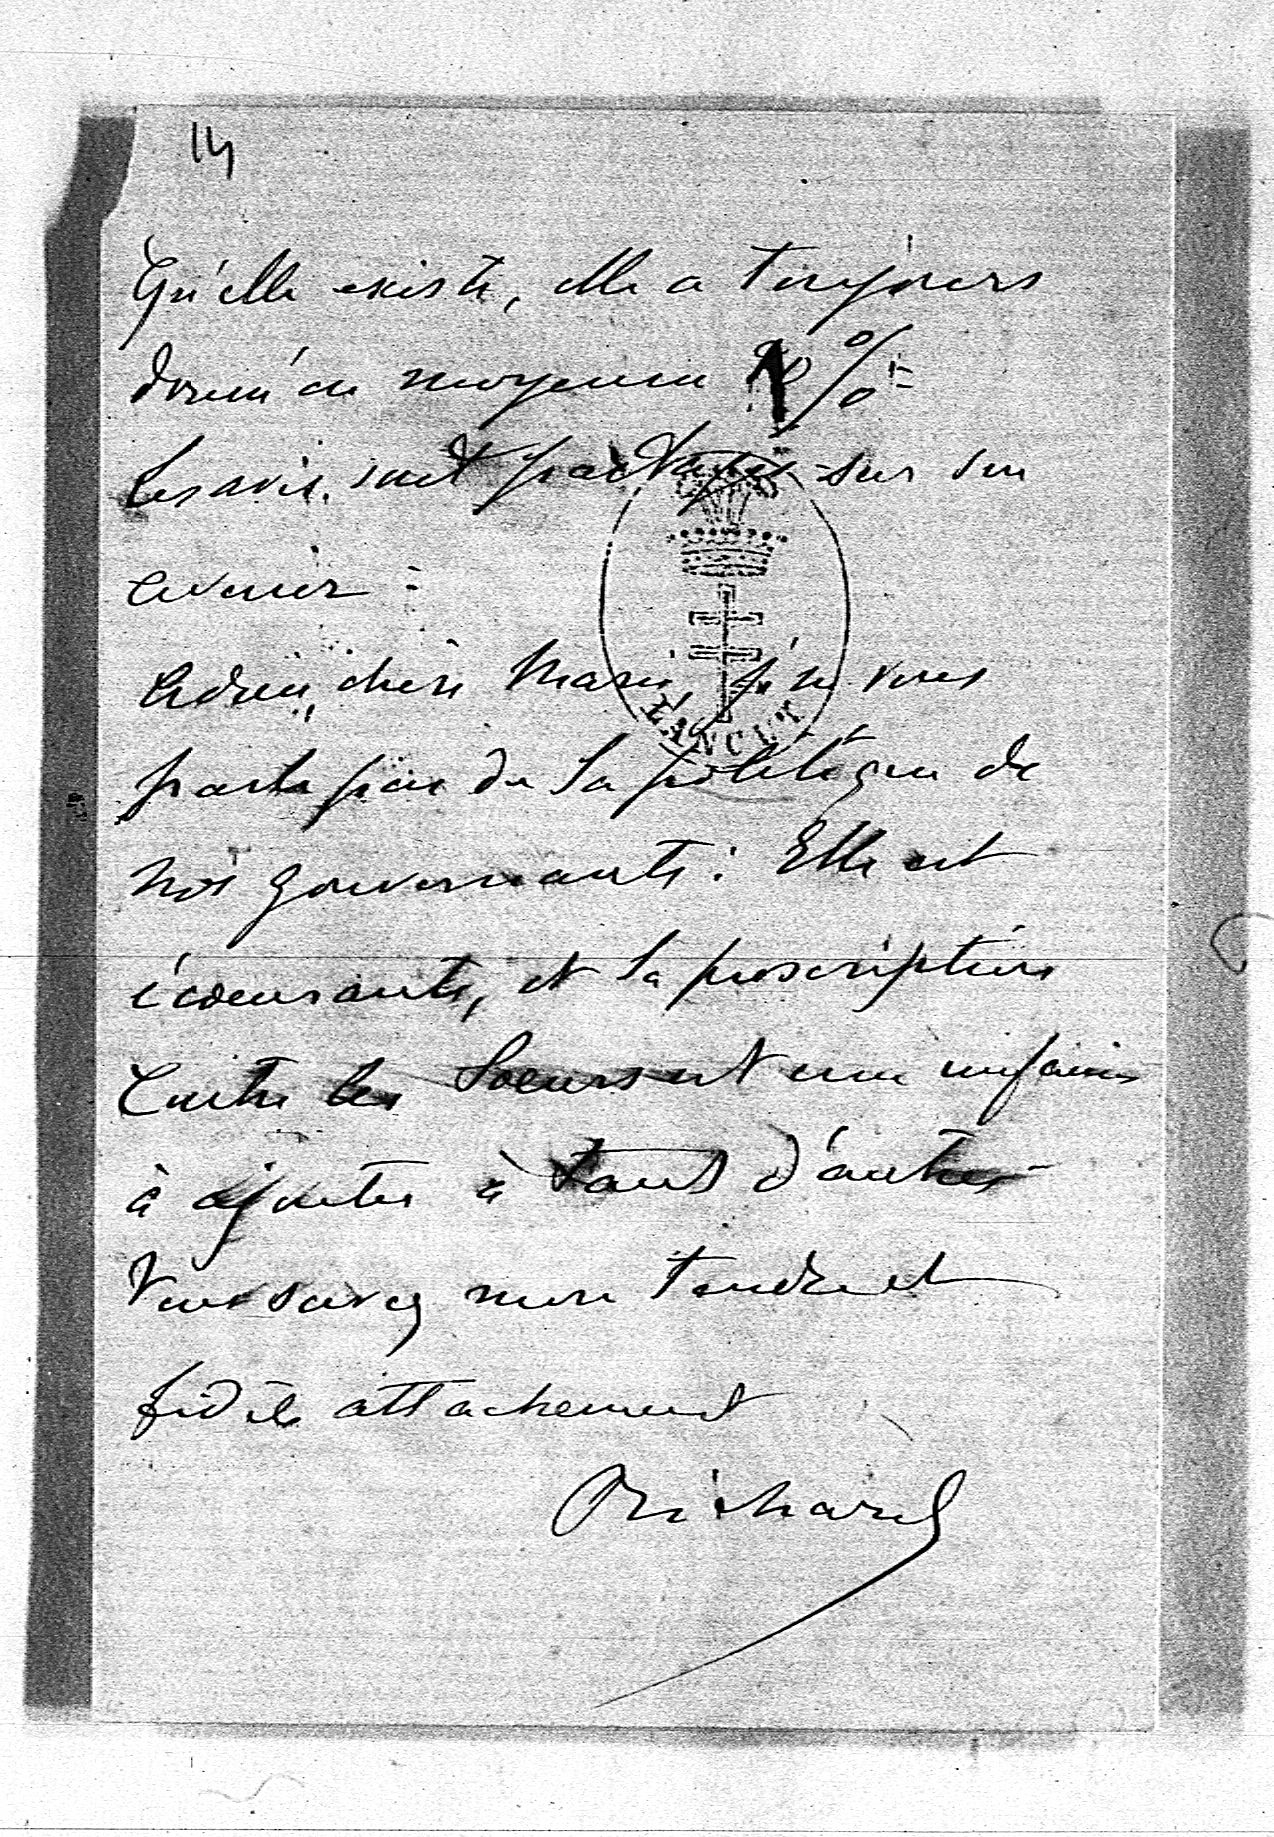 14
qu'elle existe, elle a toujours
donné en moyenne %
Les avis sont partagés sur son
avenir :
Adieu, chère Marie, je ne vous
parle pas de la politique de
nos gouvernants : Elle est
écoeurante, et la proscription
contre les Soeurs est une infamie
à ajouter à tant d'autres
Vous savez mon tendre et
fidèle attachement
Richard
ŁAŃCUT